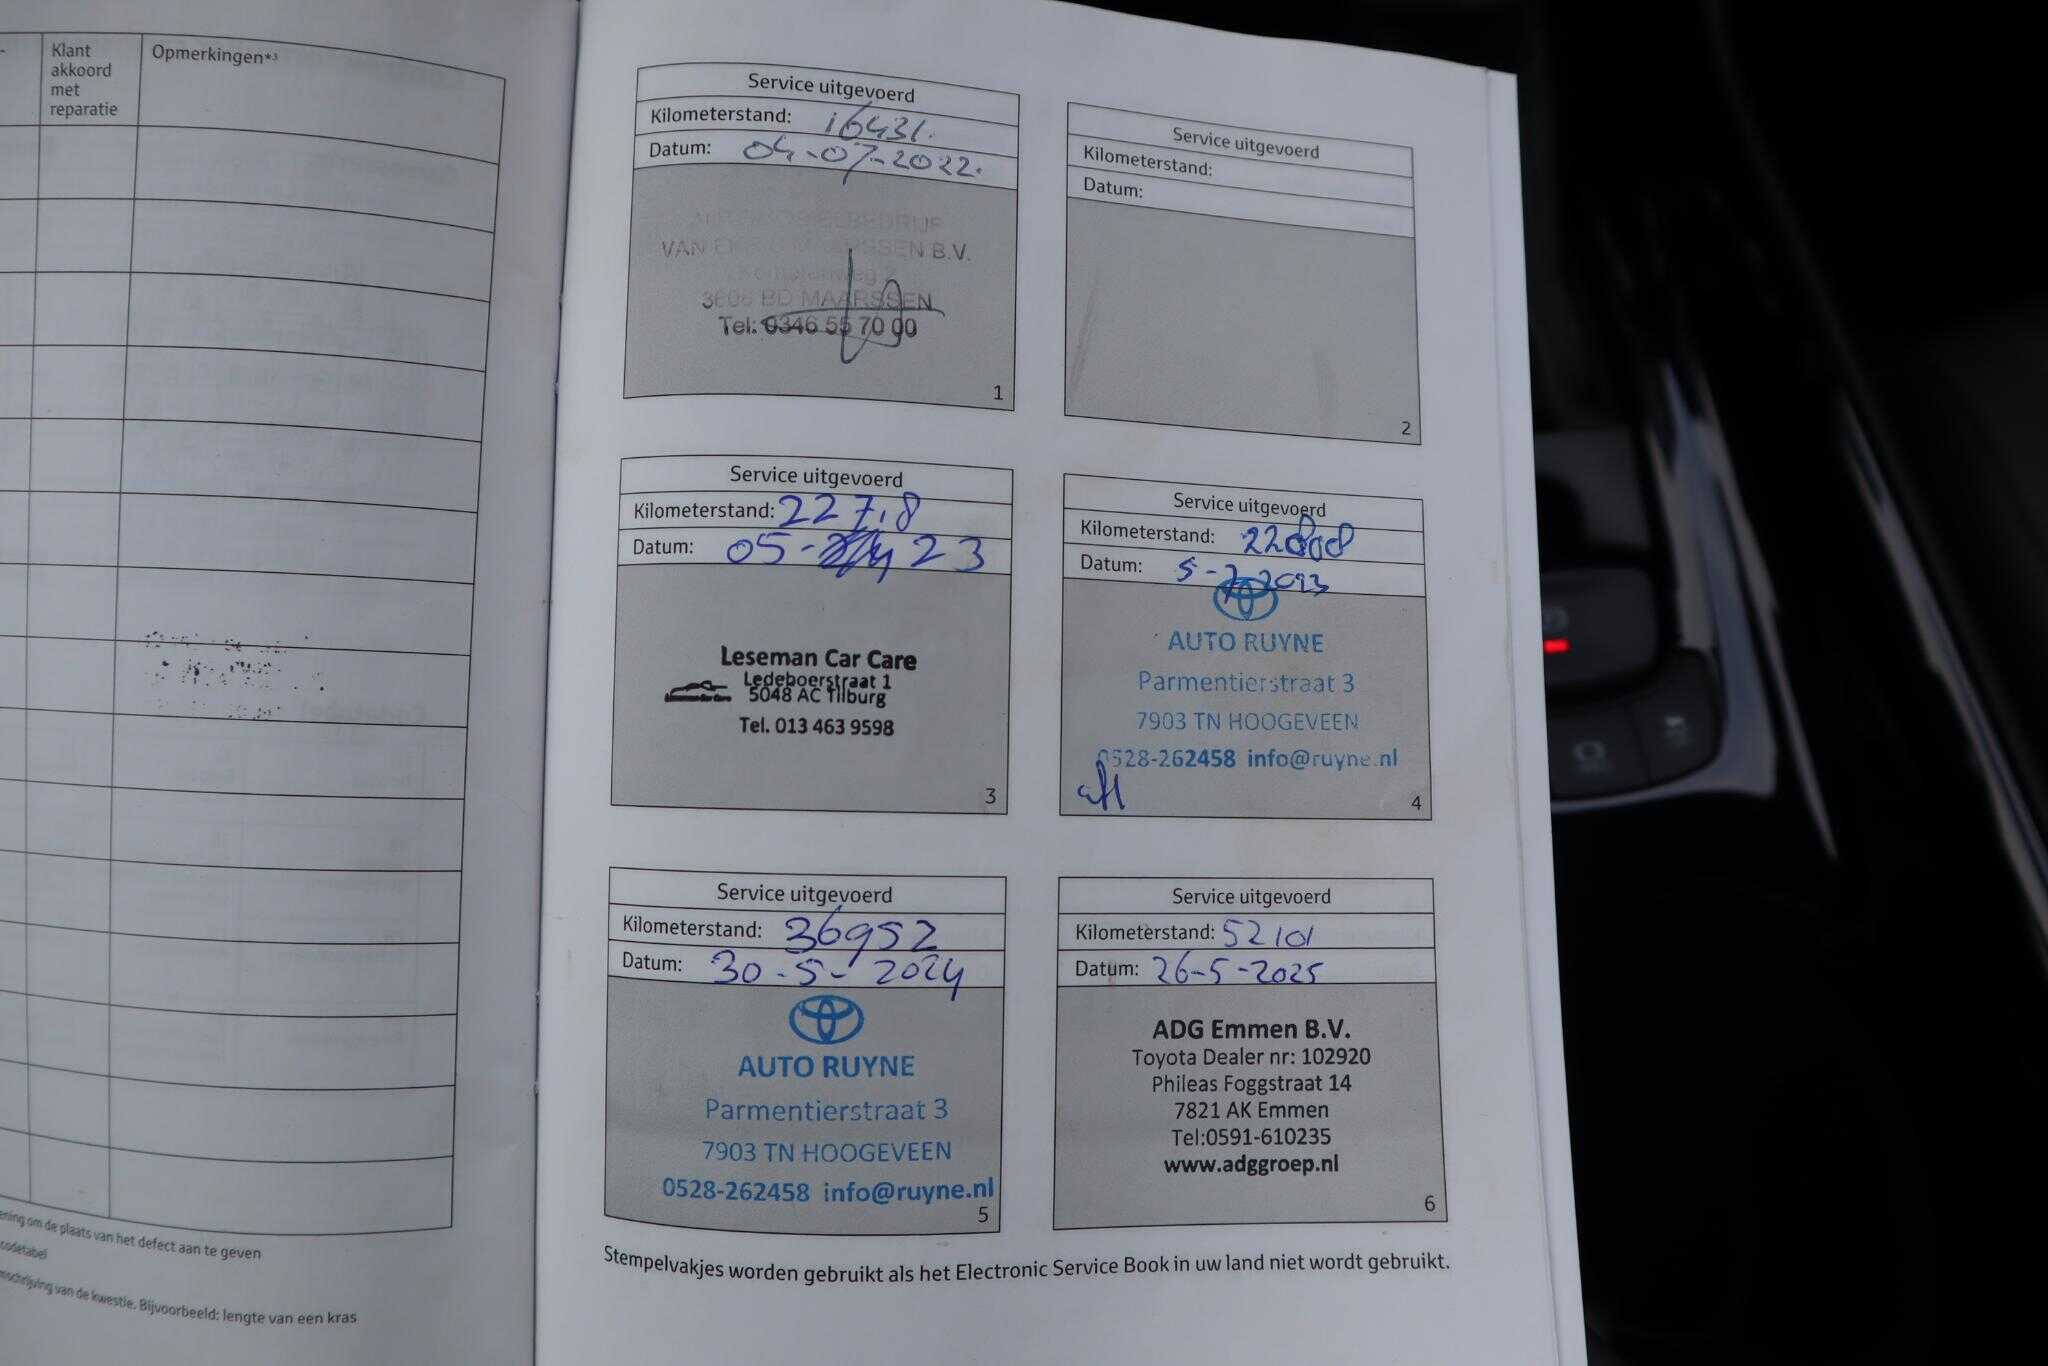 Klant
akkoord
met
reparatie
Opmerkingen*³
ening om de plaats van het defect aan te geven
codetabel
van de kwestie. Bijvoorbeeld: lengte van een kras
Service uitgevoerd
Kilometerstand: 16431.
Datum: 04-07-2022.
VAN B.V.
3606 BD MAARSSEN
Tel: 0346 55 70 00
1
Service uitgevoerd
Kilometerstand:
Datum:
2
Service uitgevoerd
Kilometerstand: 22718
Datum: 05- 23
Leseman Car Care
Ledeboerstraat 1
5048 AC Tilburg
Tel. 013 463 9598
3
Service uitgevoerd
Kilometerstand: 22808
Datum: 5-7-2023
AUTO RUYNE
Parmentierstraat 3
7903 TN HOOGEVEEN
0528-262458 info@ruyne.nl
4
Service uitgevoerd
Kilometerstand: 36952
Datum: 30-5-2024
AUTO RUYNE
Parmentierstraat 3
7903 TN HOOGEVEEN
0528-262458 info@ruyne.nl
5
Service uitgevoerd
Kilometerstand: 52101
Datum: 26-5-2025
ADG Emmen B.V.
Toyota Dealer nr: 102920
Phileas Foggstraat 14
7821 AK Emmen
Tel:0591-610235
www.adggroep.nl
6
Stempelvakjes worden gebruikt als het Electronic Service Book in uw land niet wordt gebruikt.